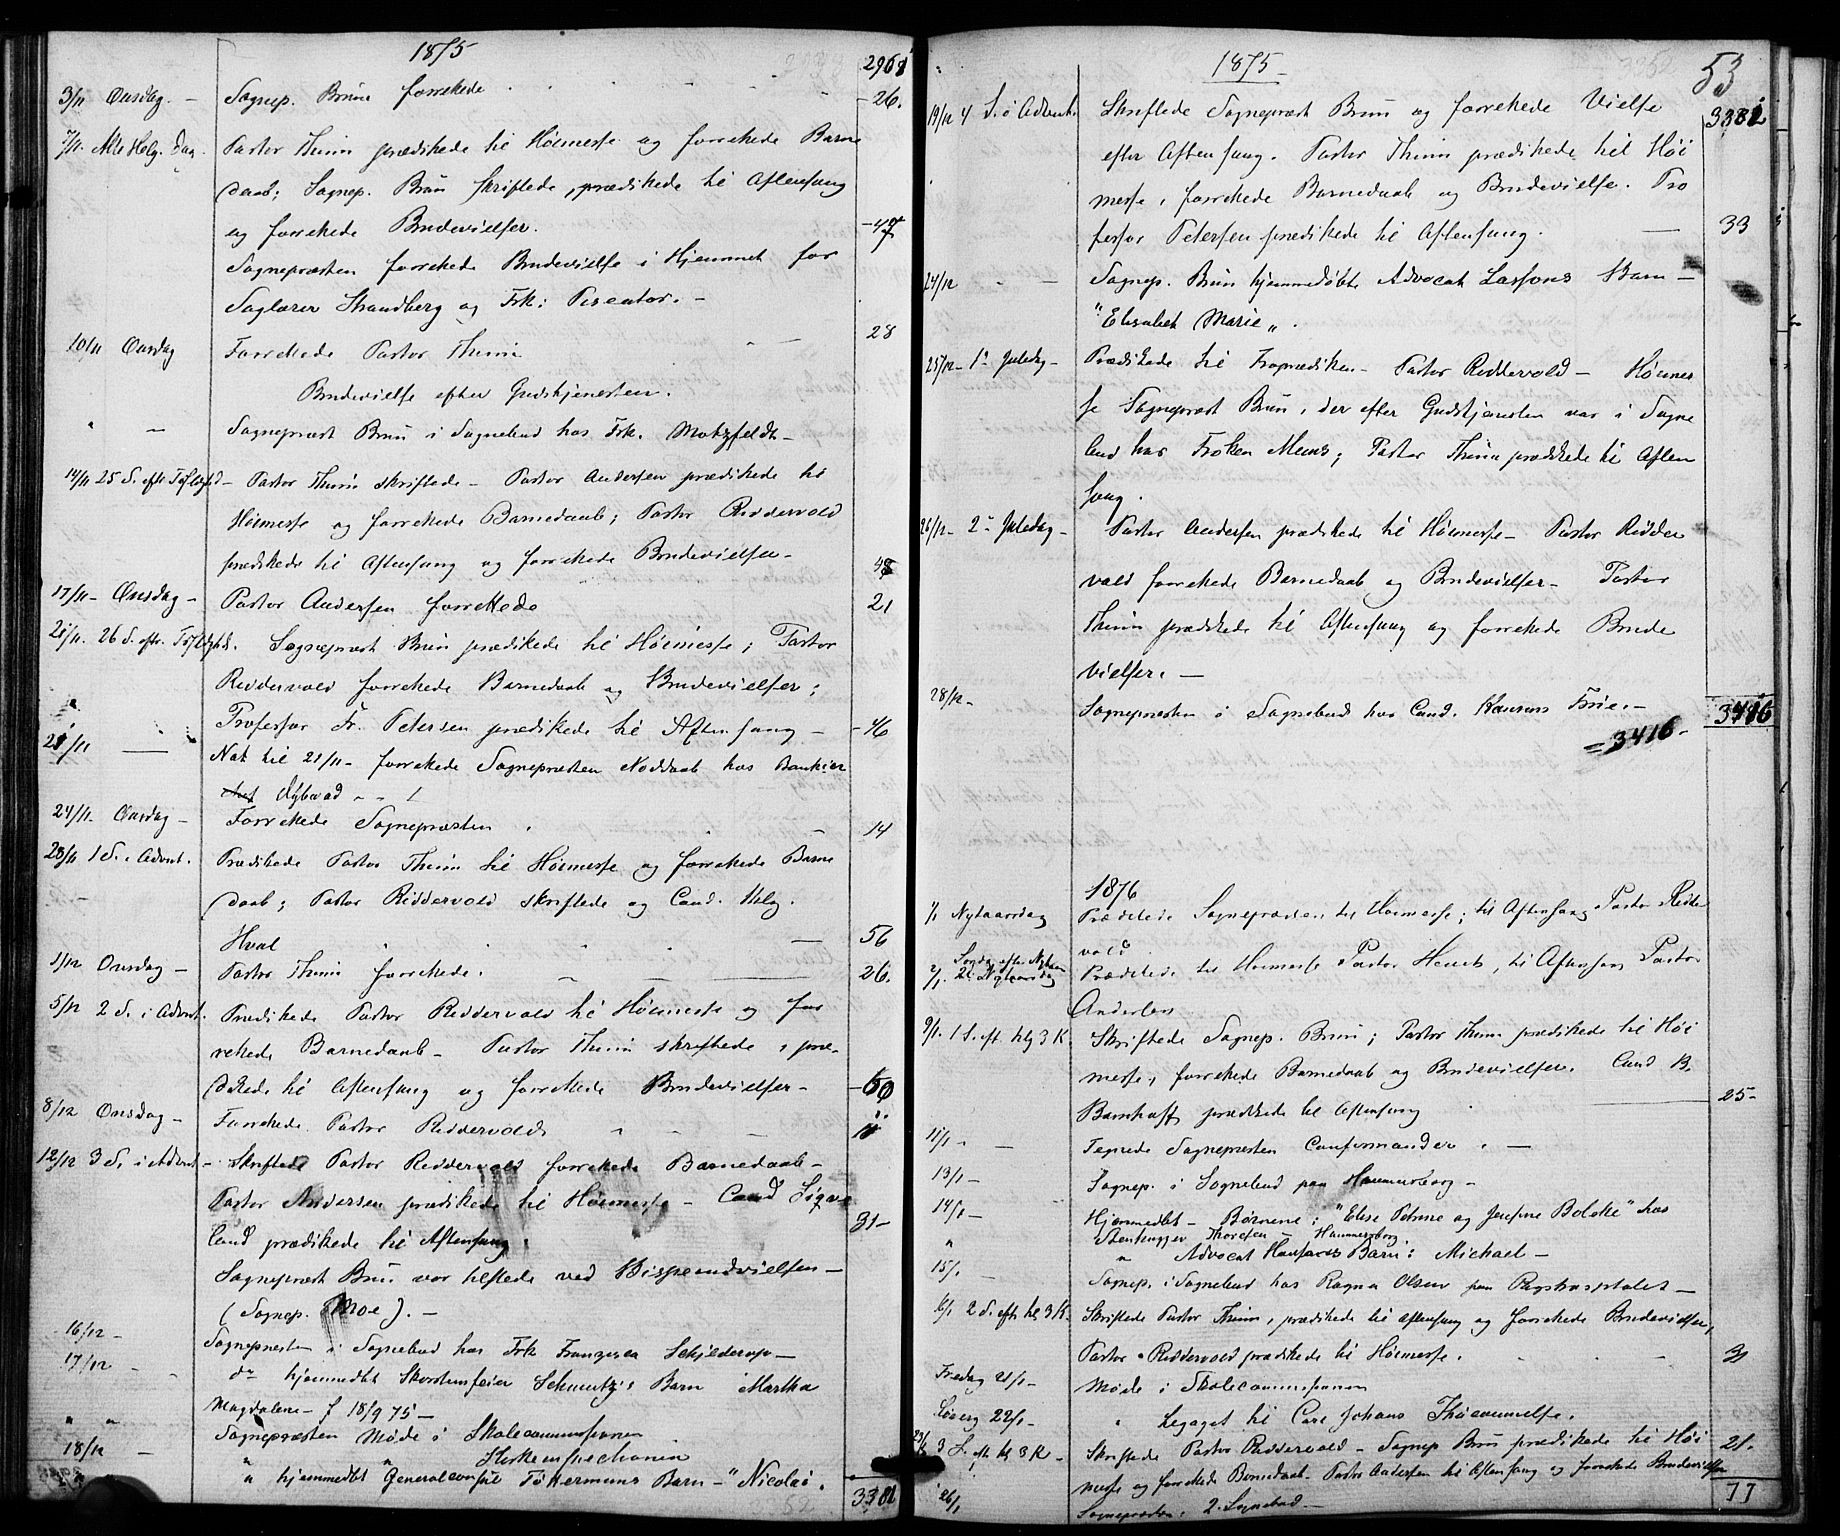 1875
2968
3/11 Onsdag. - Sognep. Bruun forrettede - 26.
7/11. Alle Helg. Dag. Pastor Thinn prædikede til Høimesse og forrettede Barne
daab; Sognep. Bruun skriftede, prædikede til Aftensang
og forrettede Brudevielser. - 47
Sognepræsten forrettede Brudevielse i Hjemmet for
Faglærer Strandberg og Frk: Piscator. -
10/11 Onsdag Forrettede Pastor Thinn - 28
Brudevielse efter Gudstjenesten.
" - Sognepræst Bruun i Sognebud hos Frk. Motzfeldt -
14/11 25 S. eft. - Pastor Thinn skriftede - Pastor Andersen prædikede til
Høimesse og forrettede Barnedaab; Pastor Riddervold
prædikede til Aftensang og forrettede Brudevielser - 48
17/11 - Onsdag - Pastor Andersen forrettede 21
21/11. 26 S. eftr. Sognepræst Bruun prædikede til Høimesse; Pastor
Riddervold forrettede Barnedaab og Brudevielser;
Professor Fr. Petersen prædikede til Aftensang - 46
21/11 - Nat til 21/11 - forrettede Sognepræsten Nøddaab hos Bankier
Dybwad - -
24/11. Onsdag - Forrettede Sognepræsten. - 14
28/11 1 S. i Advent. Prædikede Pastor Thinn til Høimesse og forrettede Barne
daab; Pastor Riddervold skriftede og Cand. Helg.
Hval - 56
1/12 Onsdag - Pastor Thinn forrettede. 26.
5/12 2 S. i Advent. Prædikede Pastor Riddervold til Høimesse og for
rettede Barnedaab - Pastor Thinn skriftede, præ-
dikede til Aftensang og forrettede Brudevielser - 60
8/12 Onsdag - Forrettede Pastor Riddervold 11
12/12 3 S. i Advent - Skriftede Pastor Riddervold forrettede Barnedaab -
Pastor Andersen prædikede til Høimesse - Cand
land prædikede til Aftensang. 31 -
Sognepræst Bruun var tilstede ved Bispeindvielsen -
(Sognep. Moe). -
16/12 - Sognepresten i Sognebud hos Frk Franzisca Schjelderup -
17/12 - do hjemmedbt Skorstensfeier Schmutzig's Barn Martha
Magdalene - f 18/9 75 -
" " Sognepræsten Møde i Skolecommissionen
18/12 - " "
" hjemmedbt Generalconsul Tøkermans Barn - "Nicolai.
3382
1875 53
19/12 4 S. i Advent. Skriftede Sognepræst Bruun og forrettede Vielse 3382
efter Aftensang. Pastor Thinn prædikede til Høi
messe, forrettede Barnedaab og Brudevielse. Pro
fessor Petersen prædikede til Aftensang. - 33
24/12 - - Sognep. Bruun hjemmedøbte Advocat Lassons Barn -
"Elisabet Marie".
25/12 - 1ste Juledag - Prædikede til Froprædiken - Pastor Riddervold - Høimes
se Sognepræst Bruun, der efter Gudstjenesten var i Sogne
bud hos Frøken Meens; Pastor Thinn prædikede til Aften
sang.
26/12 - 2den Juledag - Pastor Andersen prædikede til Høimesse - Pastor Ridder
vold forrettede Barnedaab og Brudevielser - Pastor
Thinn prædikede til Aftensang og forrettede Brude
vielser. -
28/12 - Sognepræsten i Sognebud hos Cand. Hansens Frue. - 3416
= 3416 -
1876
1/1 Nytaarsdag Prædikede Sognepræsten til Høimesse; til Aftensang Pastor Ridder
vold
2/1. Søndag efter Nytaar Prædikede til Høimesse Pastor Heuch, til Aftensang Pastor
Andersen
9/1. 1 S. eft. hlg 3 K. Skriftede Sognep. Bruun; Pastor Thinn prædikede til Høi
messe, forrettede Barnedaab og Brudevielser. Cand B.
Barnhoff prædikede til Aftensang - 25 -
11/1 - - Tegnede Sognepresten Confirmander. -
13/1 - Sognep. i Sognebud paa Hammersborg -
14/1 - Hjemmedbt - Børnene: "Elise Petrine og Josefine Bolette" hos
Stenhugger Thorsten - Hammersborg.
" " Advocat Hansens Barn: Michael -
15/1 - Sognep. i Sognebud hos Ragna Olsen paa Rigshospitalet -
16/1 2 S. eft. hl 3 K. Skriftede Pastor Thinn, prædikede til Aftensang og forrettede Brudevielser,
Pastor Riddervold prædikede til Høimesse. - 31
Fredag 21/1 - Møde i Skolecommissionen
Løverg 22/1 - " Legatet til Carl Johans Ihukommelse.
23/1 3 S. eft. hl 3 K - Skriftede Pastor Riddervold - Sognep Bruun prædikede til Høi 21.
messe og forrettede Barnedaab - Pastor Andersen til Aftensang og forrettede Brudevielser
77
26/1 Sognepresten: 2 Sognebud -